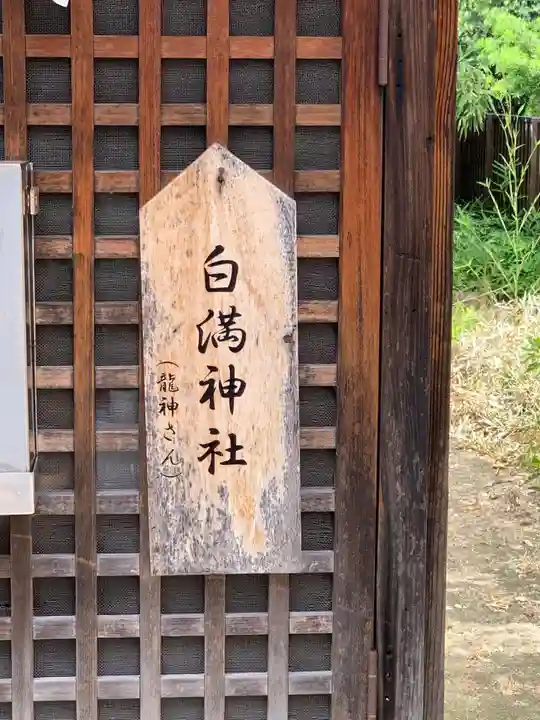 白満神社
（龍神さん）